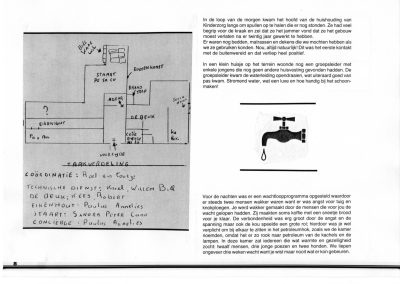 STAART
?
EIKENHOUT
ADEM
DE BEUK
TAAKVERDELING
COÖRDINATIE: Riet en
TECHNISCHE DIENST: Karel, Willem B.
DE BEUK: KEES ROBERT
EIKENHOUT: Paulus Annelies
STAART: SANDRA PETER
CONCIERGE: Paulus Annelies
In de loop van de morgen kwam het hoofd van de huishouding van
Kinderzorg langs om spullen op te halen die er nog stonden. Ze had veel
begrip voor de kraak en zei dat ze het jammer vond dat ze het gebouw
moest verlaten na er twintig jaar gewerkt te hebben.
Er waren nog bedden, matrassen en dekens die we mochten hebben als
we ze gebruiken konden. Nou, altijd natuurlijk! Dit was het eerste kontakt
met de buitenwereld en dat verliep heel positief.
In een klein huisje op het terrein woonde nog een groepsleider met
enkele jongens die nog geen andere huisvesting gevonden hadden. De
groepsleider kwam de waterleiding opendraaien, wat uiteraard goed van
pas kwam. Stromend water, wel een luxe en hoe handig bij het schoon-
maken!
Voor de nachten was er een wachtloopprogramma opgesteld waardoor
er steeds twee mensen wakker waren want er was angst voor tuig en
knokploegen. Je werd wakker gemaakt door de mensen die voor jou de
wacht gelopen hadden. Zij maakten soms koffie met een sneetje brood
voor je klaar. De verbondenheid was erg groot door de angst en de
spanning maar ook de kou speelde een grote rol; hierdoor was je wel
verplicht om bij elkaar te zitten in het petroleumhok, zoals we de kamer
noemden, omdat het er zo rook naar petroleum van de kachels en de
lampen. In deze kamer zat iedereen die wat warmte en gezelligheid
zocht: twaalf mensen, drie jonge poezen en twee honden. We liepen
ongeveer drie weken wacht want je wist maar nooit wat er kon gebeuren.